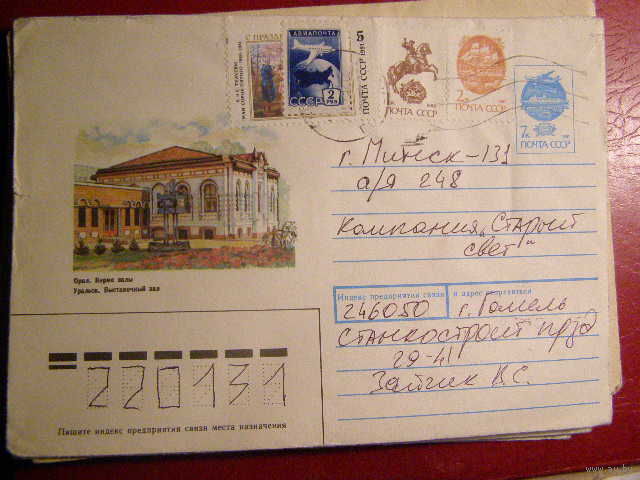 С ПРАЗД
АВИАПОЧТА
2
РУБ
СССР
5
ПОЧТА СССР
1991
2к
ПОЧТА СССР
7к
ПОЧТА СССР
г. Минск-131
а/я 248
Компания "Старый
свет"
Орал. Көрме залы
Уральск. Выставочный зал
Индекс предприятия связи и адрес отправителя
246050 г. Гомель
29-41
Зайчик В.С.
220131
Пишите индекс предприятия связи места назначения